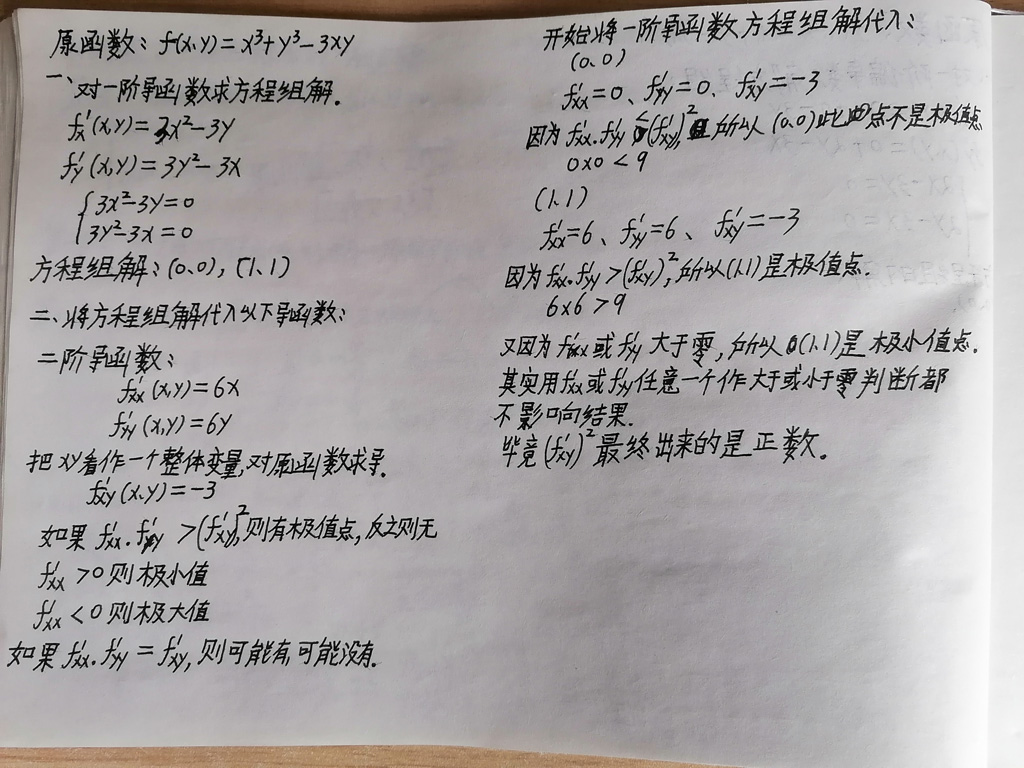 原函数：f(x,y)=x³+y³-3xy
一、对一阶导函数求方程组解.
fx'(x,y)=3x²-3y
fy'(x,y)=3y²-3x
{3x²-3y=0
3y²-3x=0
方程组解：(0,0)，(1,1)
二、将方程组解代入以下导函数：
二阶导函数：
fxx'(x,y)=6x
fyy'(x,y)=6y
把xy看作一个整体变量,对原函数求导.
fxy'(x,y)=-3
如果 fxx'·fyy' >(fxy')²,则有极值点,反之则无
fxx' >0则极小值
fxx' <0则极大值
如果fxx'·fyy' = fxy',则可能有,可能没有.
开始将一阶导函数方程组解代入：
(0,0)
fxx'=0、fyy'=0、fxy'=-3
因为fxx'·fyy'<(fxy')²,所以(0,0)此点不是极值点
0x0<9
(1,1)
fxx'=6、fyy'=6、fxy'=-3
因为fxx'·fyy'>(fxy')²,所以(1,1)是极值点.
6x6>9
又因为fxx'或fyy'大于零,所以(1,1)是极小值点.
其实用fxx'或fyy'任意一个作大于或小于零判断都
不影响结果.
毕竟(fxy')²最终出来的是正数。